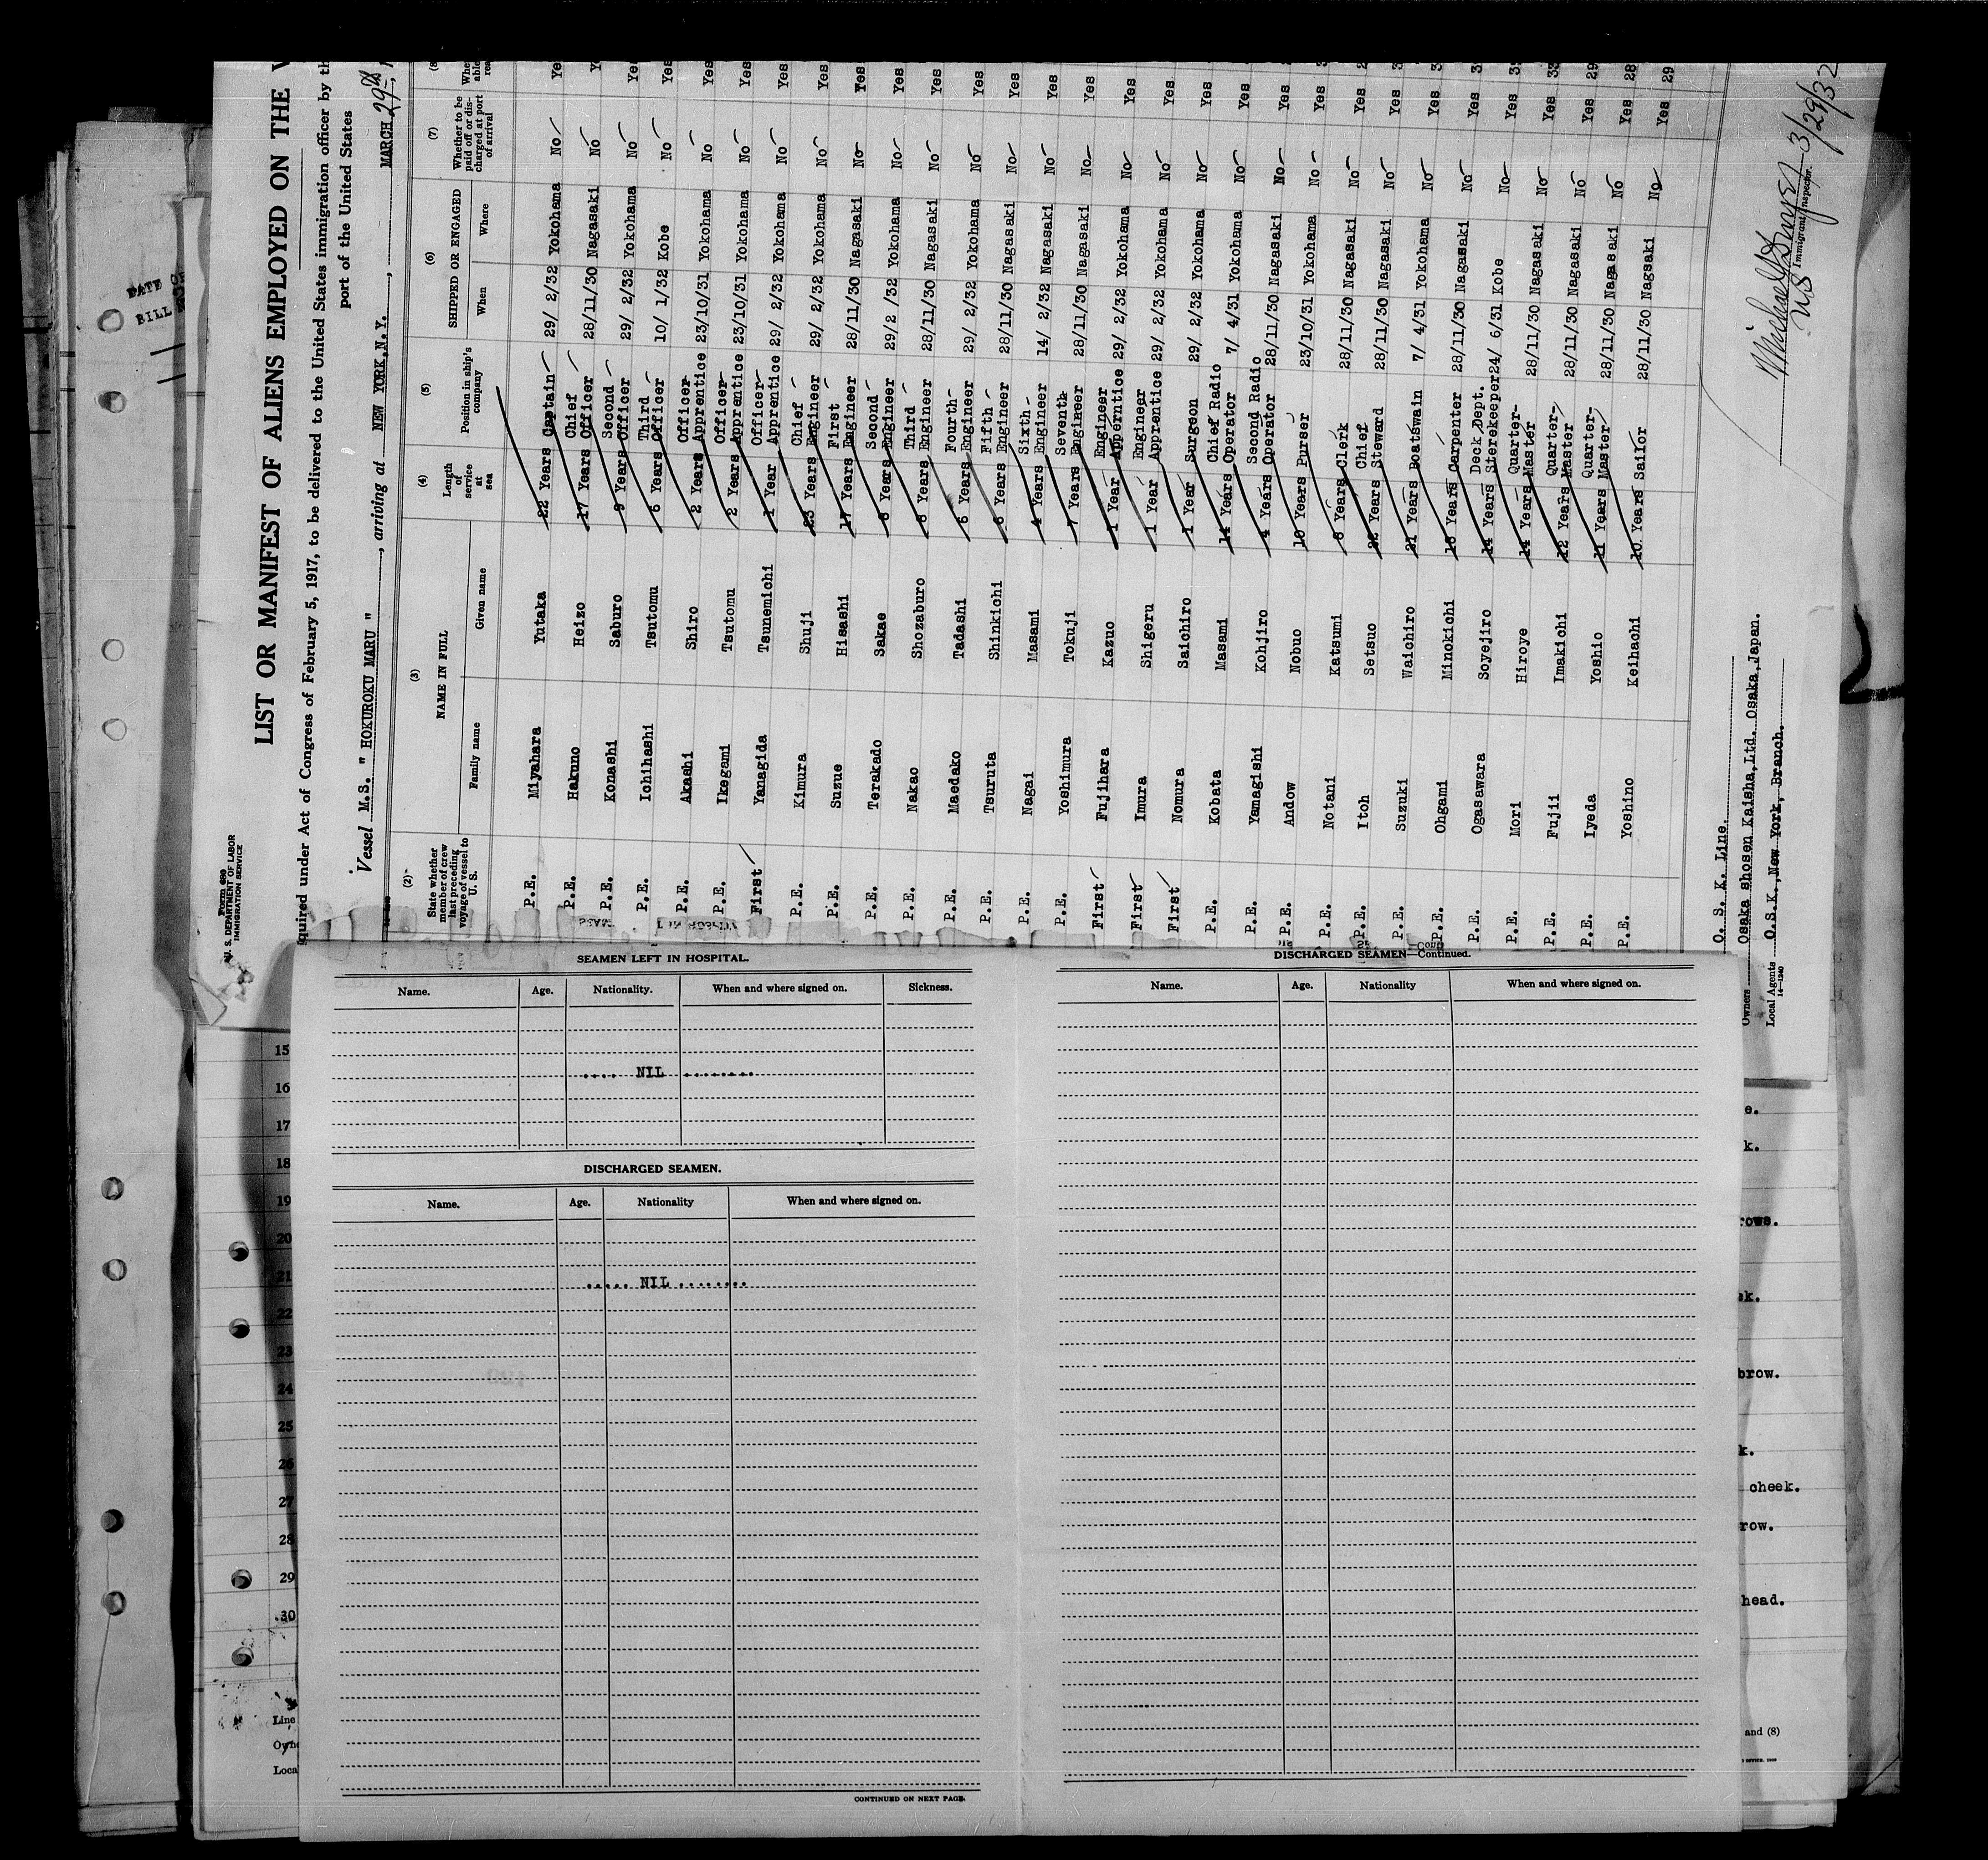 Form 680
U. S. DEPARTMENT OF LABOR
IMMIGRATION SERVICE
LIST OR MANIFEST OF ALIENS EMPLOYED ON THE
quired under Act of Congress of February 5, 1917, to be delivered to the United States immigration officer by th
port of the United States
Vessel M.S. " HOKUROKU MARU ", arriving at NEW YORK, N.Y. , MARCH 29th,
(2) (3) (4) (5) (6) (7) (8
State whether member of crew last preceding voyage of vessel to U. S. NAME IN FULL Family name Given name Length of service at sea Position in ship's company SHIPPED OR ENGAGED When Where Whether to be paid off or discharged at port of arrival
P.E. Miyahara Yutaka 22 Years Captain 29/ 2/32 Yokohama No Ye
P.E. Hakuno Heizo 17 Years Chief Officer 28/11/30 Nagasaki No Y
P.E. Konashi Saburo 9 Years Second Officer 29/ 2/32 Yokohama No Ye
P.E. Ichihashi Tsutomu 6 Years Third Officer 10/ 1/32 Kobe No Yes
P.E. Akashi Shiro 2 Years Officer Apprentice 23/10/31 Yokohama No Yes
P.E. Ikegami Tsutomu 2 Years Officer Apprentice 23/10/31 Yokohama No Yes
First Yanagida Tsunemichi 1 Year Officer Apprentice 29/ 2/32 Yokohama No Yes
P.E. Kimura Shuji 23 Years Chief Engineer 29/ 2/32 Yokohama No Yes
P.E. Suzue Hisashi 17 Years First Engineer 28/11/30 Nagasaki No Yes
P.E. Terakado Sakae 8 Years Second Engineer 29/2 /32 Yokohama No Yes
P.E. Nakao Shozaburo 8 Years Third Engineer 28/11/30 Nagasaki No Yes
P.E. Maedako Tadashi 6 Years Fourth Engineer 29/ 2/32 Yokohama No Yes
P.E. Tsuruta Shinkichi 6 Years Fifth Engineer 28/11/30 Nagasaki No Yes
P.E. Nagai Masami 4 Years Sixth Engineer 14/ 2/32 Nagasaki No Yes
P.E. Yoshimura Tokuji 7 Years Seventh Engineer 28/11/30 Nagasaki No Yes
First Fujihara Kazuo 1 Year Engineer Apperntice 29/ 2/32 Yokohama No Yes
First Imura Shigeru 1 Year Engineer Apprentice 29/ 2/32 Yokohama No Yes
First Nomura Saichiro 1 Year Surgeon 29/ 2/32 Yokohama No Yes
P.E. Kobata Masami 14 Years Chief Radio Operator 7/ 4/31 Yokohama No Yes
P.E. Yamagishi Kohjiro 4 Years Second Radio Operator 28/11/30 Nagasaki No Yes
P.E. Andow Nobuo 10 Years Purser 23/10/31 Yokohama No Yes
P.E. Notani Katsumi 8 Years Clerk 28/11/30 Nagasaki No Yes
P.E. Itoh Setsuo 22 Years Chief Steward 28/11/30 Nagasaki No Yes
P.E. Suzuki Waichiro 21 Years Boatswain 7/ 4/31 Yokohama No Yes
P.E. Ohgami Minokichi 18 Years Carpenter 28/11/30 Nagasaki No Yes
P.E. Ogasawara Soyejiro 14 Years Deck Dept. Storekeeper 24/ 6/31 Kobe No Yes
P.E. Mori Hiroye 14 Years Quarter-Master 28/11/30 Nagasaki No Yes
P.E. Fujii Imakichi 12 Years Quarter-Master 28/11/30 Nagasaki No Yes 29
P.E. Iyeda Yoshio 11 Years Quarter-Master 28/11/30 Nagasaki No Yes 28
P.E. Yoshino Keihachi 10 Years Sailor 28/11/30 Nagsaki No Yes 29
O. S. K. Line.
Owners Osaka Shosen Kaisha, Ltd. Osaka, Japan.
Local Agents O.S.K., New York, Branch.
14-1240
US Immigrant Inspector. 3/29/32
DATE OF
BILL
SEAMEN LEFT IN HOSPITAL.
Name. Age. Nationality. When and where signed on. Sickness.
.... NIL ........
DISCHARGED SEAMEN.
Name. Age. Nationality When and where signed on.
..... NIL ........
CONTINUED ON NEXT PAGE.
DISCHARGED SEAMEN—Continued.
Name. Age. Nationality When and where signed on.
15
16
17
18
19
20
21
22
23
24
25
26
27
28
29
30
Line
Owne
Loca
e.
k.
rows.
ek.
brow.
k.
cheek.
row.
head.
and (8)